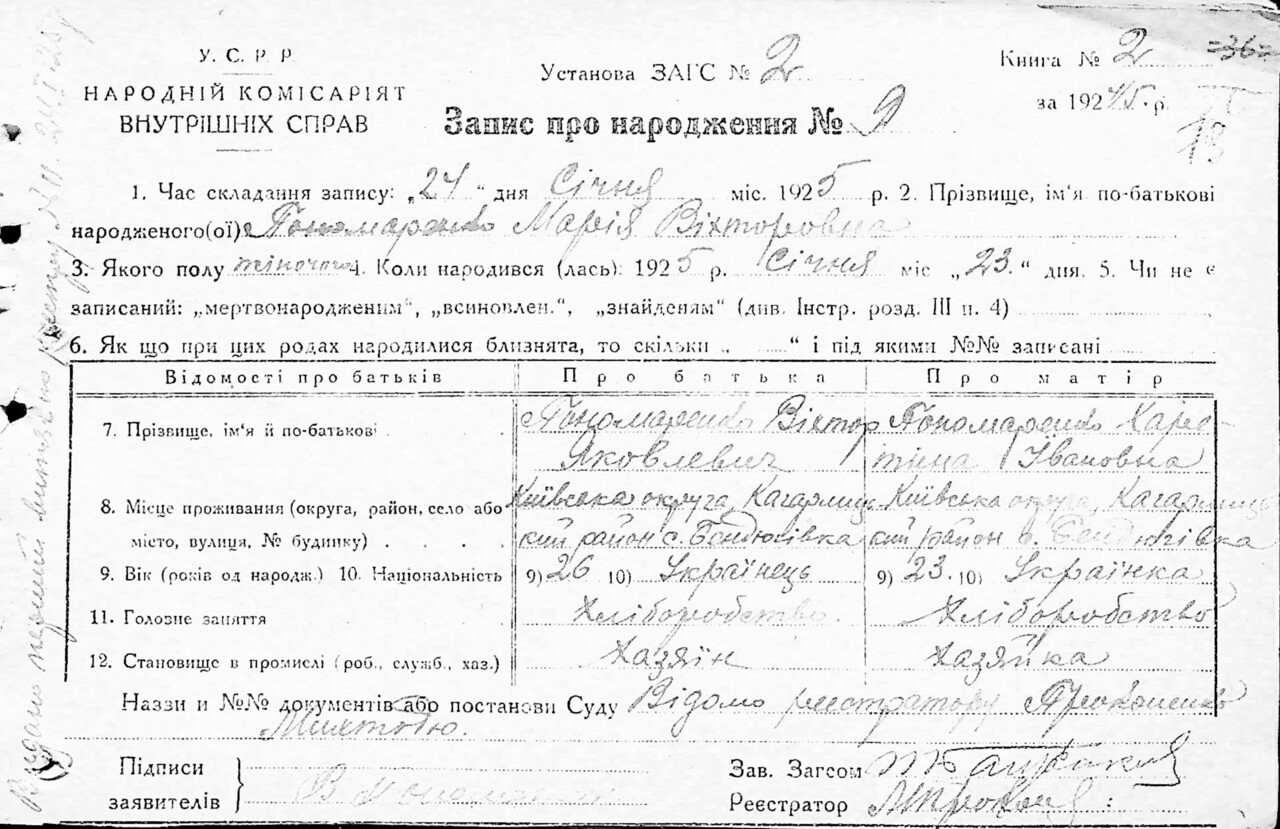 У. С. Р. Р.
НАРОДНІЙ КОМІСАРІЯТ
ВНУТРІШНІХ СПРАВ
Установа ЗАГС № 2
Книга № 2
=36=
за 1924/5 р.
Запис про народження № 9
1. Час складання запису: „24“ дня Січня міс. 1925 р. 2. Прізвище, ім'я по-батькові
народженого(ої) Пономаренко Марія Вікторовна
3. Якого полу жіночого 4. Коли народився (лась): 1925 р. Січня міс „23.“ дня. 5. Чи не є
записаний: „мертвонародженим“, „всиновлен.“, „знайденям“ (див. Інстр. розд. III п. 4)
6. Як що при цих родах народилися близнята, то скільки „ “ і під якими №№ записані
Відомості про батьків Про батька Про матір
7. Прізвище, ім'я й по-батькові Пономаренко Віктор Яковлевич Пономаренко Іӑвановна
8. Місце проживання (округа, район, село або Київська округа, Кагарлиць Київська округа, Кагарлиць
місто, вулиця, № будинку) кий район с. Бендюгівка кий район с. Бендюгівка
9. Вік (років од народж.) 10. Національність 9) 26 10) Українець 9) 23. 10) Українка
11. Головне заняття Хліборобство Хліборобство
12. Становище в промислі (роб., служб., хаз.) Хазяїн Хазяйка
Назви и №№ документів або постанови Суду Відомо реєстратору
Підписи
заявителів
Зав. Загсом
Реєстратор